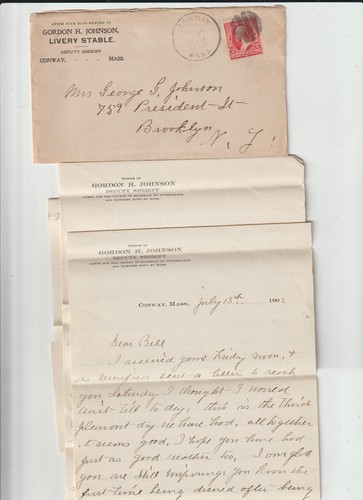 AFTER FIVE DAYS RETURN TO
GORDON H. JOHNSON,
LIVERY STABLE.
DEPUTY SHERIFF
CONWAY, MASS.
CONWAY
MASS.
Mrs George G. Johnson
759 President St
Brooklyn
N. Y.
OFFICE OF
GORDON H. JOHNSON
DEPUTY SHERIFF
OFFICE OF
GORDON H. JOHNSON
DEPUTY SHERIFF
CONWAY, MASS. July 13th 1902
Dear Bell
I received yours Friday noon, &
as a letter to reach
you Saturday I thought I would
wait till to day, this is the third
pleasant day we have had, all together
it seems good, I hope you have had
just as good weather too, I am glad
you are still improving. You know the
first time being dressed after being